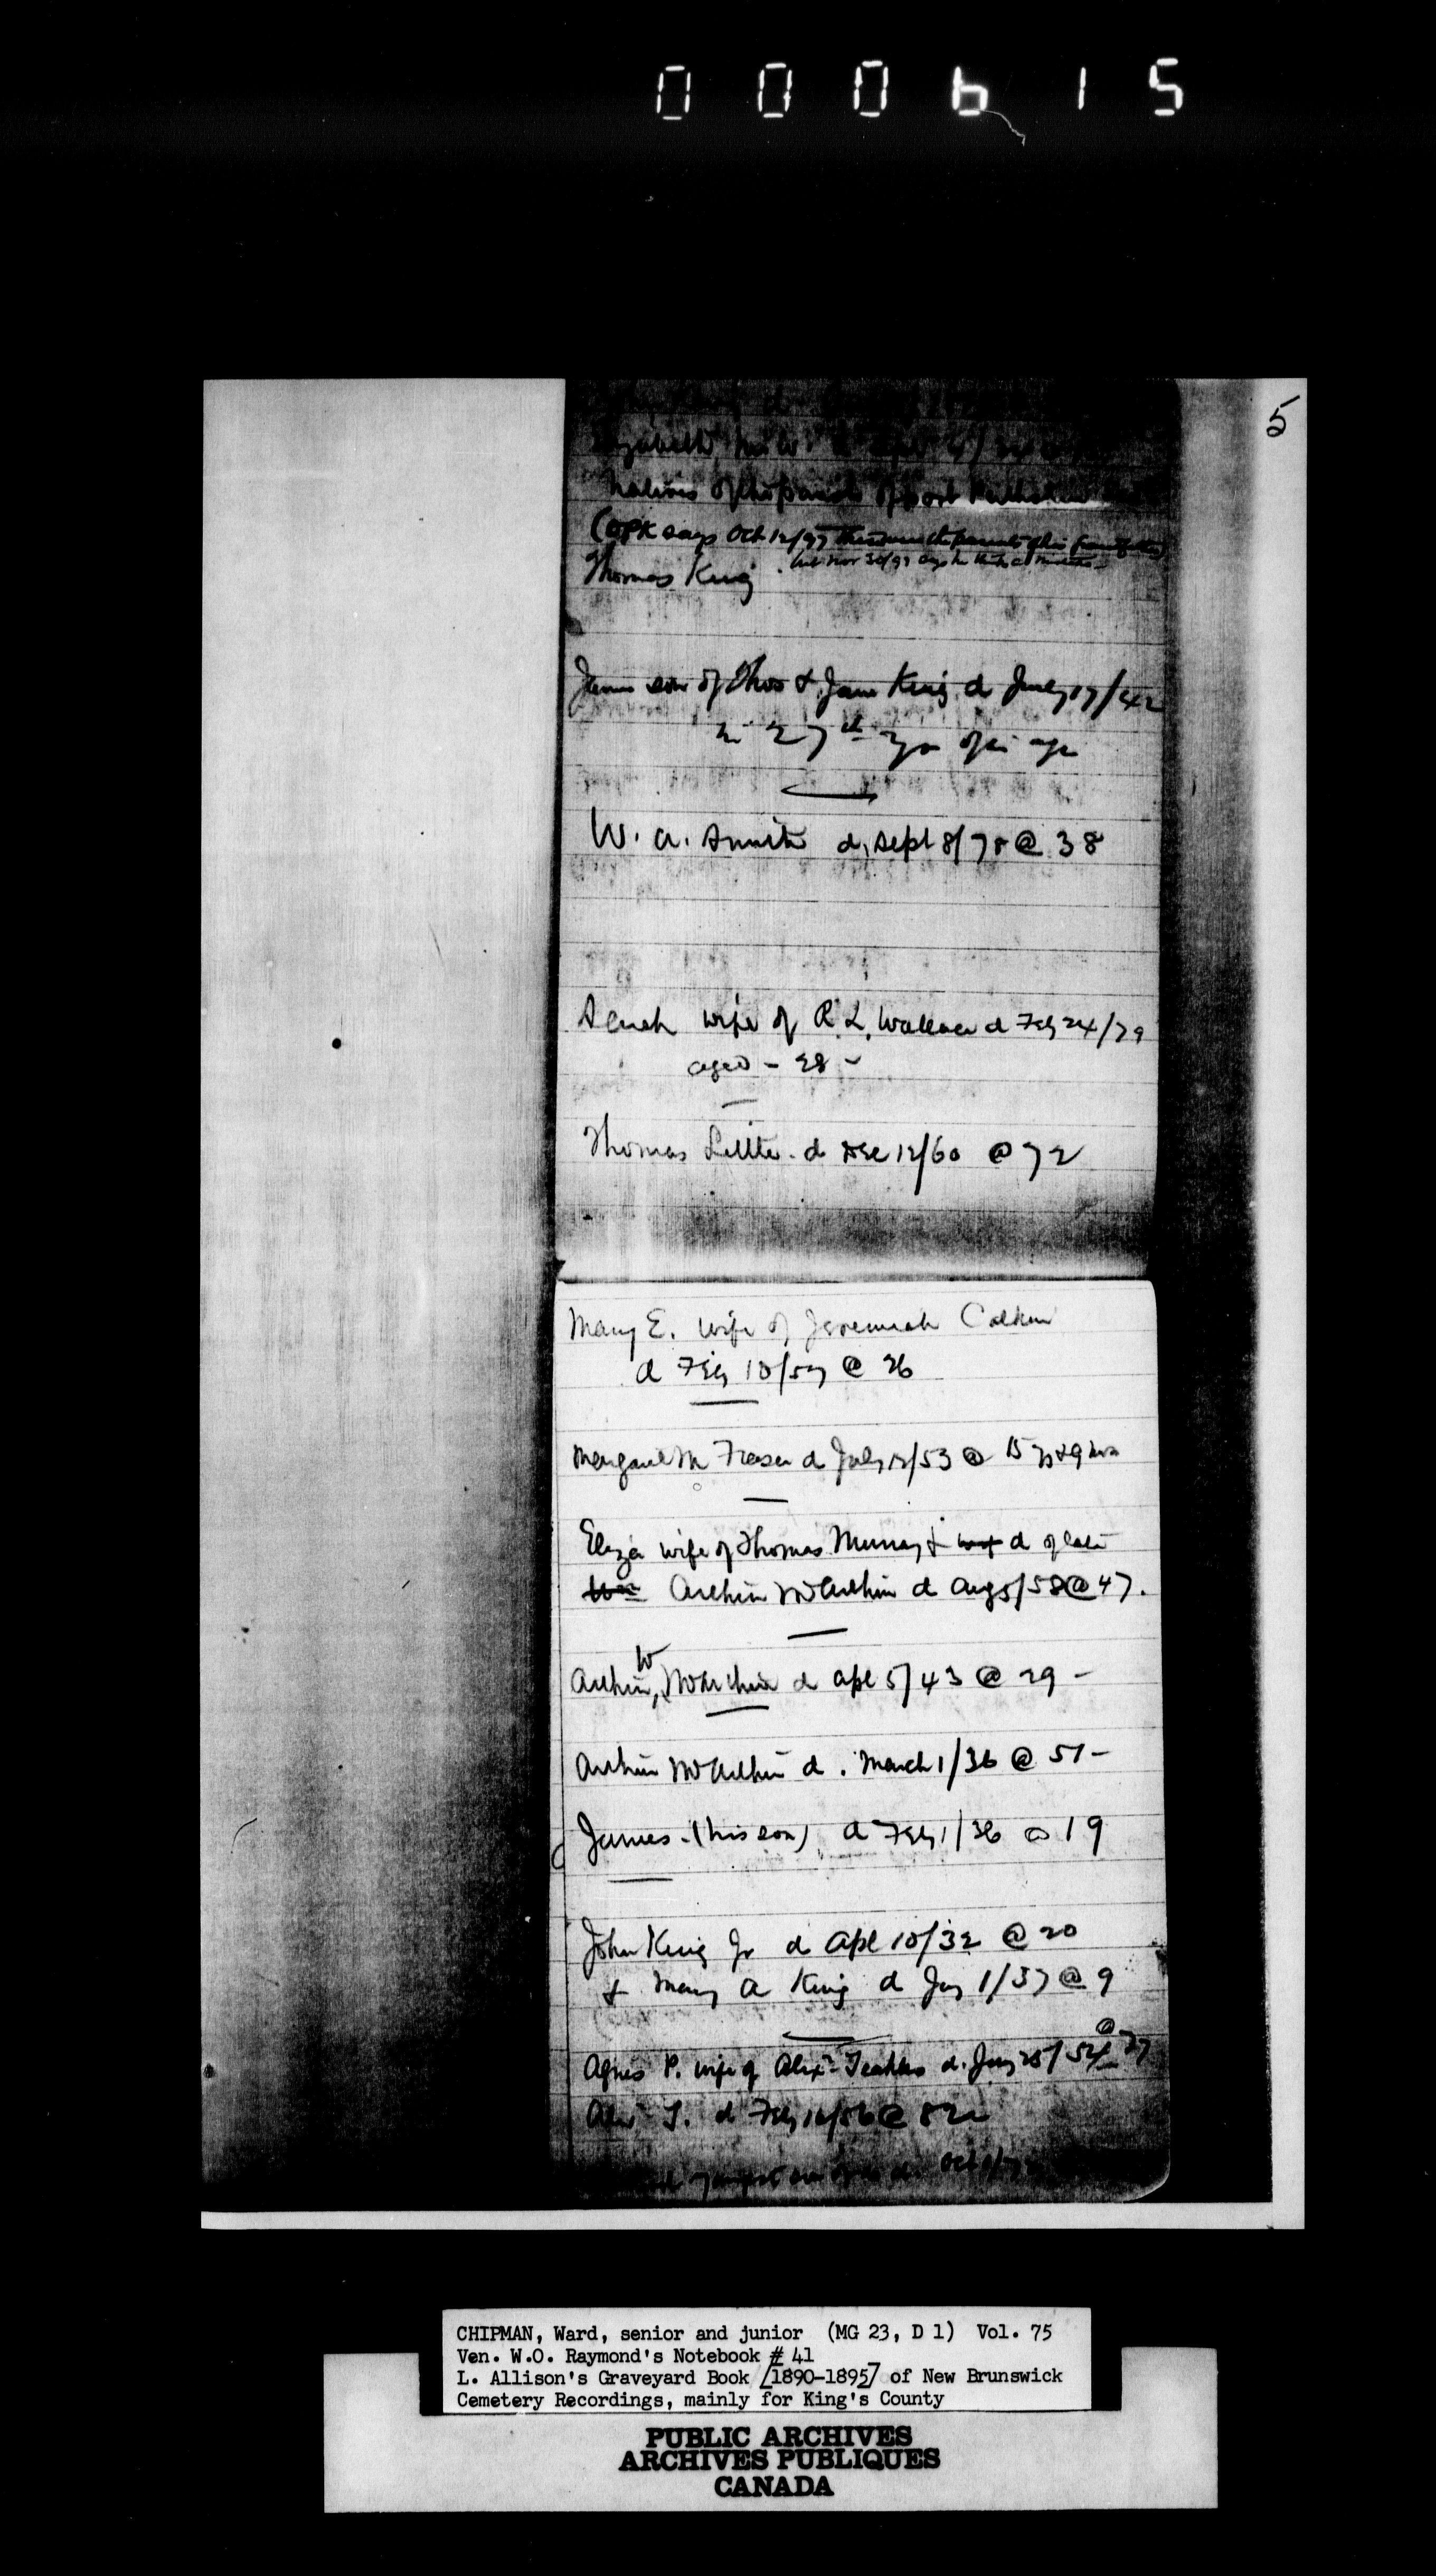 000615
5
Elizabeth, his W
natives of the parish of
(GFK says Oct 12/97 these were the parents of his grandfather)
but Nov 30/97 says he thinks a mistake -
Thomas King
James son of Thos & Jane King d July 17/42
in 27th yr of his age
W. A. Smith d. Sept 8/78 @ 38
Sarah wife of R. L. Wallace d Feby 24/79
aged - 38 -
Thomas Little. d Dec 12/60 @ 72
Mary E. wife of Jeremiah Calhoun
d Feby 10/57 @ 26
Margaret M Fraser d July 12/53 @ 15 ys & 9 mos
Eliza wife of Thomas Murray & d of late
Wm Arthur McArthur d Aug 5/58 @ 47.
Arthur W, McArthur d Apl 5/43 @ 29 -
Arthur McArthur d. March 1/36 @ 51 -
James. (his son) d Feby 1/36 @ 19
John King Jr d Apl 10/32 @ 20
& Mary A King d Jany 1/37 @ 9
Agnes P. wife of Alexr d. Jany 25/54 @ 77
Alexr T. d Feby 16/56 @ 82
youngest son of d. Oct
CHIPMAN, Ward, senior and junior (MG 23, D 1) Vol. 75
Ven. W.O. Raymond's Notebook # 41
L. Allison's Graveyard Book [1890-1895] of New Brunswick
Cemetery Recordings, mainly for King's County
PUBLIC ARCHIVES
ARCHIVES PUBLIQUES
CANADA